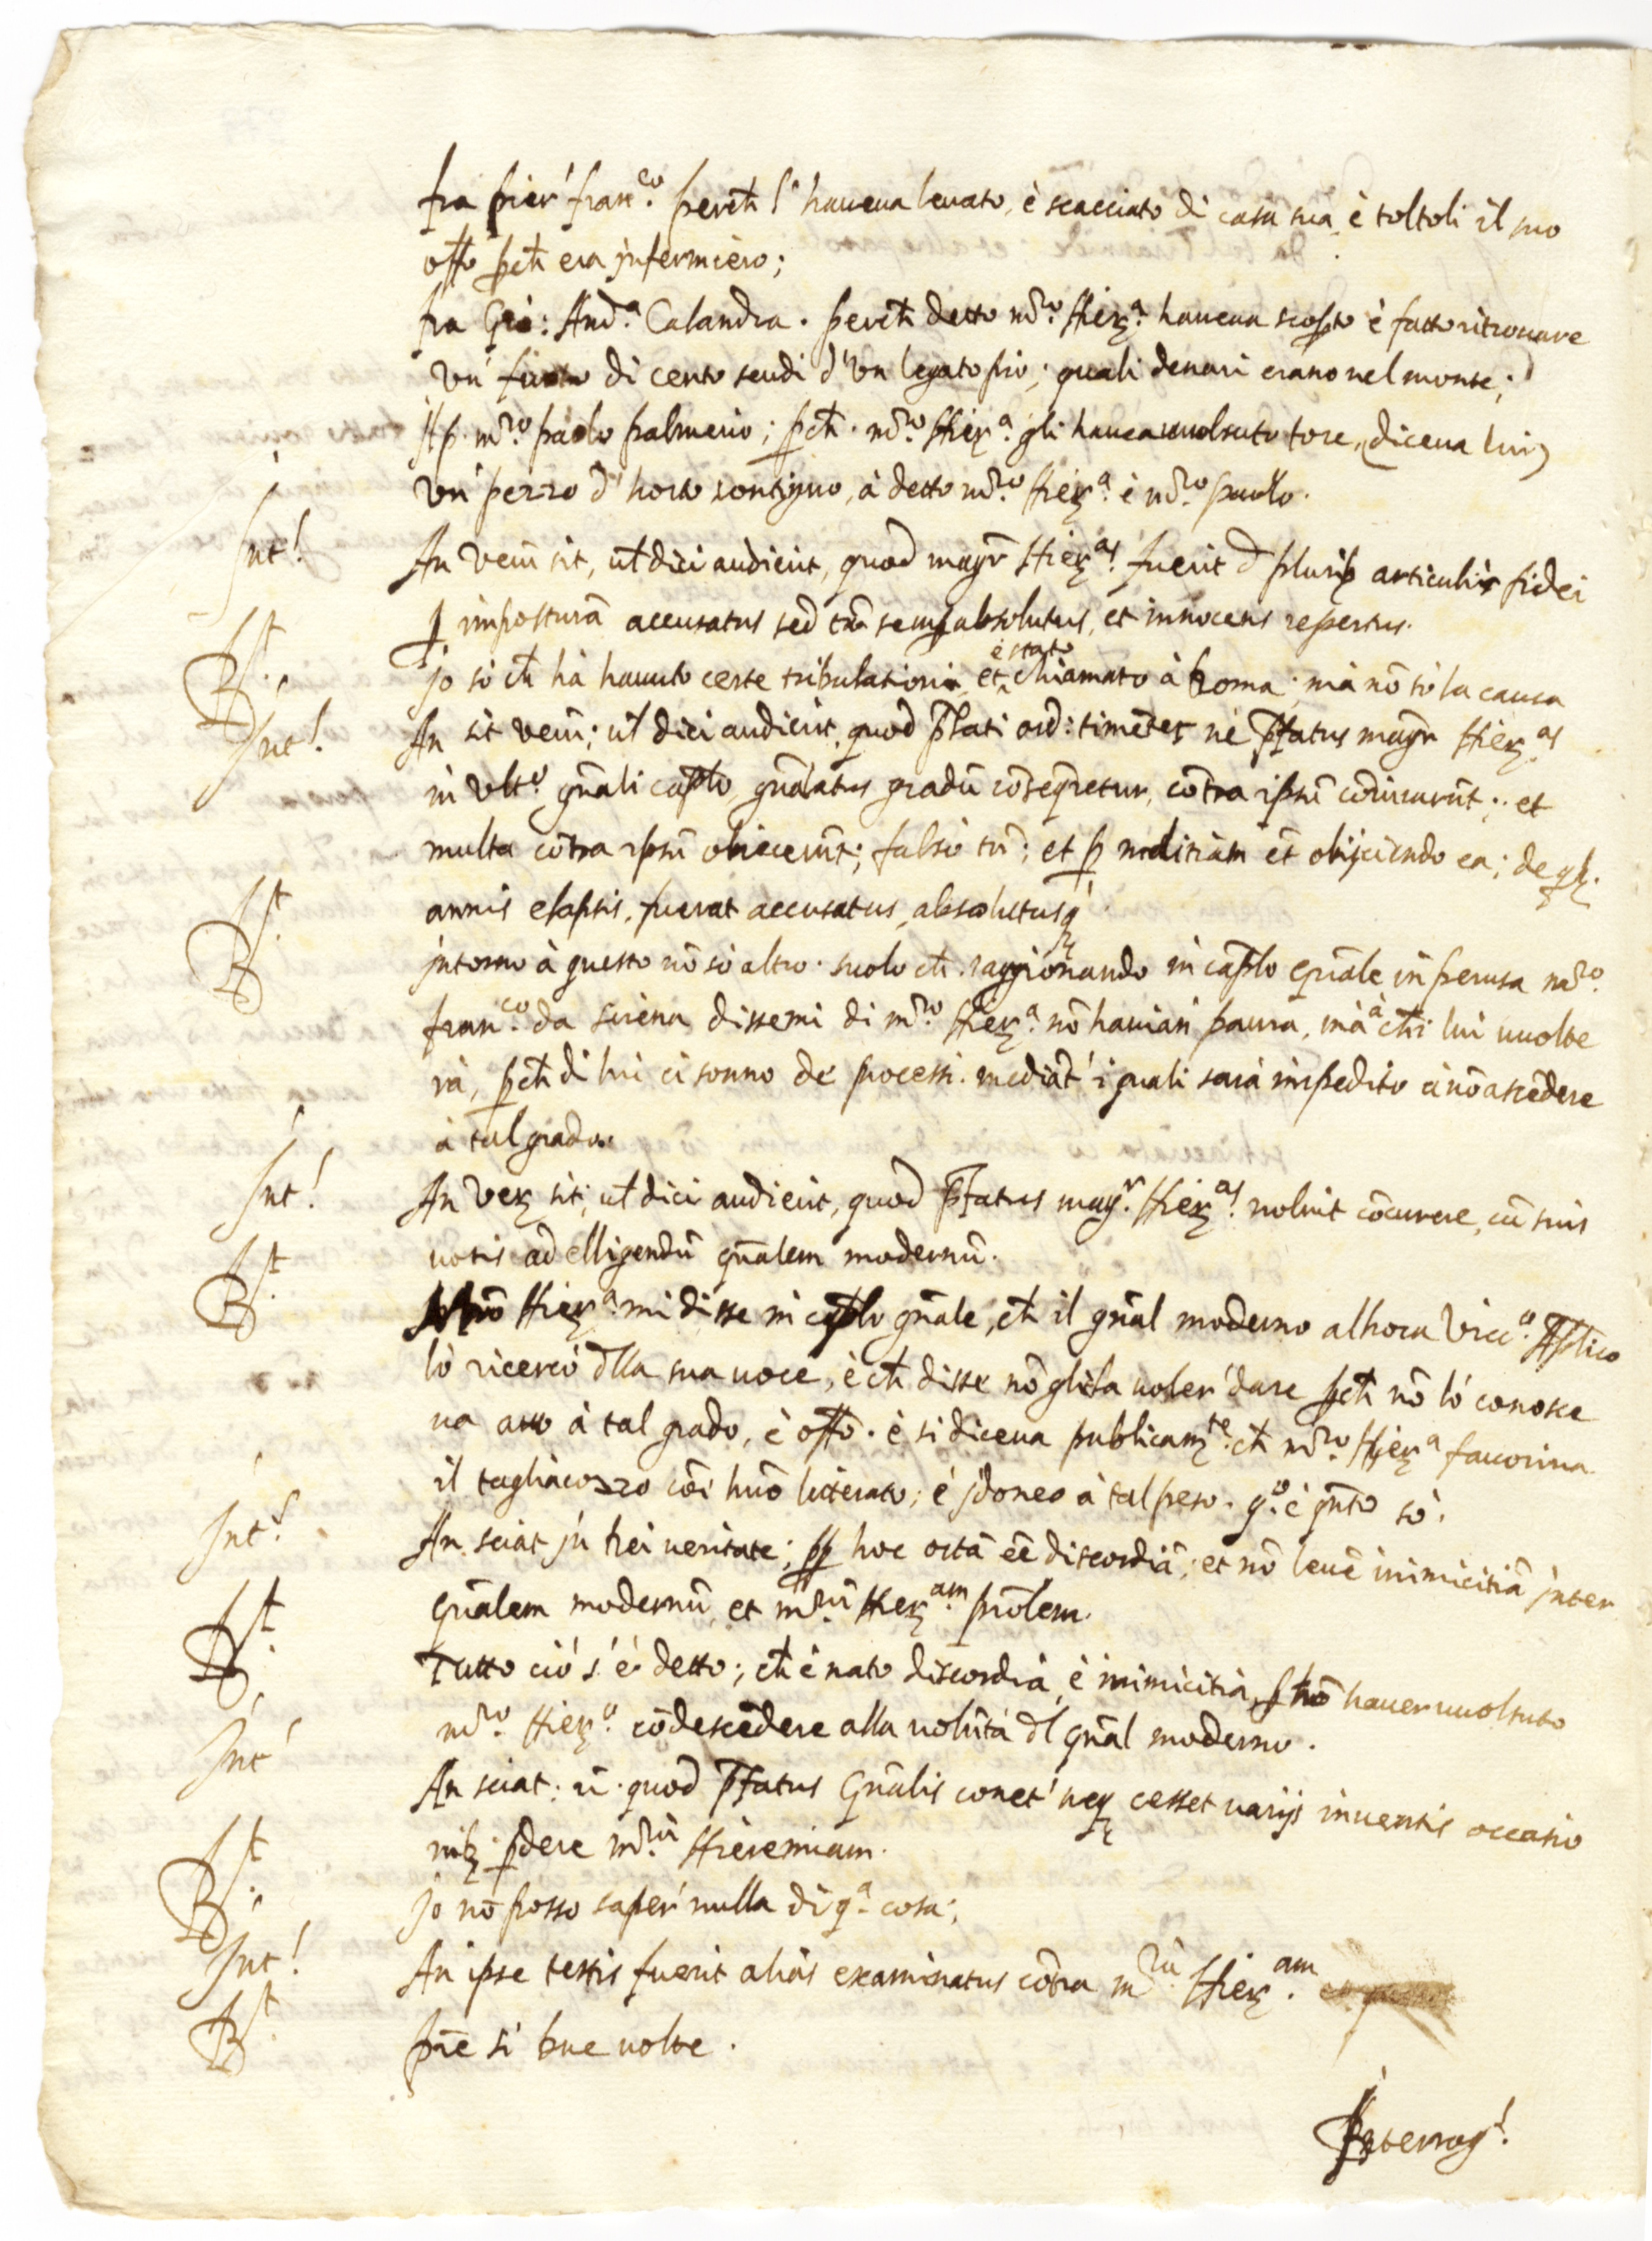 fra pier' fran.co perch l' haueua leuato, è scacciato di casa sua, è toltoli il suo
offo pch era jnfermiero;
fra Gio: And.a Calandra. perch detto mro. Hier.a haueua scopto è fatto ritrouare
un' furto di cento scudi d'un legato pio; quali denari erano nel monte;
Il p. mro. paolo palmerio; pch. mro. Hier.a gli haueua uuolsuto torre, (diceua lui)
un' pezzo d' horto contiguo, à detto mro. Hier.a è mro. paulo.
Int! An verũ sit, ut dici audierit, quod magr Hier.as fuerit d plurib articulis fidei
p imposturã accusatus sed tñ semp absolutus, et innocens repertus.
Rt. jo sò ch hà hauuto certe tribulationi, et è stato chiamato à Roma; mà nõ sò la causa
Int! An sit verũ; ut dici audierit, quod plati ord: timẽtes nè pfatus magr Hier.as
in ult.o gñali caplo, gñalatus gradũ cõseqretur, cõtra ipsũ cõiurarũt; et
multa cõtra ipsũ obiecerũt; falsò tñ; et p malitiam et obijciendo ea; de qb.
annis elapsis, fuerat accusatus, absolutusq
Rt. jntorno à questo nõ sò altro. suolo ch. raggionando in caplo gñale in perusa mro.
fran.co da sirena dissemi di mro. Hier.a nõ hauian paura, mà à chi lui uuolte
rà, pch di lui ci sonno de' processi. mediãt' i quali sarà impedito à nõ ascẽdere
à tal grado.
Int! An ver sit; ut dici audierit, quod pfatus magr. Hier.as noluit cõcurrere, cũ suis
uotis ad elligendũ gñalem modernũ.
Rt. Mro Hier.a mi disse in caplo gñale, ch il gñal moderno alhora Vicc.o Applico
lò ricercò dlla sua uoce, è ch disse nõ gliela uoler' dare pch nõ lò conosce
ua atto à tal grado, è offo. è si diceua publicam.te ch mro. Hier.a fauoriua
il tagliacozzo cõe huõ litterato; è jdoneo à tal peso. q.o è qñto sò.
Int! An sciat jn rei ueritate; pp hoc ortã eẽ discordiã, et nõ leuẽ inimicitiã jnter
gñalem modernũ, et mrũ Hier.am pñolem.
Rt. Tutto ciò s' è detto; ch è nato discordia, è inimicitia, p nõ hauer uuolsuto
mro. Hier.o cõdescẽdere alla uolũtà dl gñal moderno.
Int! An sciat: ũ. quod pfatus Gñalis conet' neq cesset uarijs inuentis occasio
nib. pdere mrũ Hieremiam.
Rt. jo nõ posso saper' nulla di q.a cosa;
Int! An ipse testis fuerit aliàs examinatus cõtra mrũ Hier.am
Rt. pre sì due uolte.
Interrog!